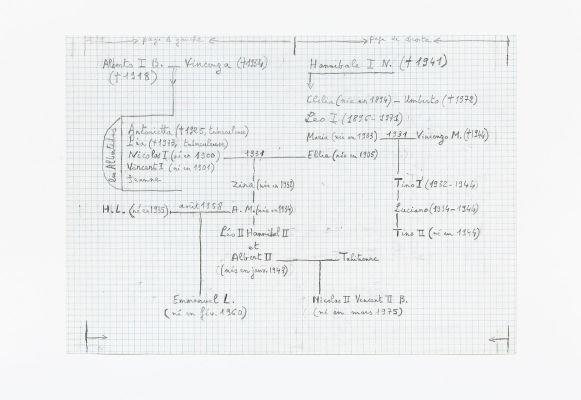 page de gauche
page de droite
Alberto I B. — Vincenza († 1954)
(† 1918)
Hannibale I N. († 1941)
Clelia (née en 1894) — Umberto († 1972)
Léo I (1896-1971)
Maria (née en 1903) 1931 Vincenzo M. († 1944)
Elba (née en 1905)
Antonietta († 1925, tuberculose)
Léa († 1927, tuberculose)
Nicolas I (né en 1900) 1931
Vincent I (né en 1901)
Jeanne
Zira (née en 1932)
Tino I (1932-1944)
H.L. (né en 1933) août 1958 A.M. (née en 1934)
Luciano (1934-1944)
Léo II Hannibal II
et
Albert II
(nés en janv. 1943)
Tino II (né en 1944)
Emmanuel L.
(né en fév. 1960)
Nicolas II Vincent II B.
(né en mars 1975)